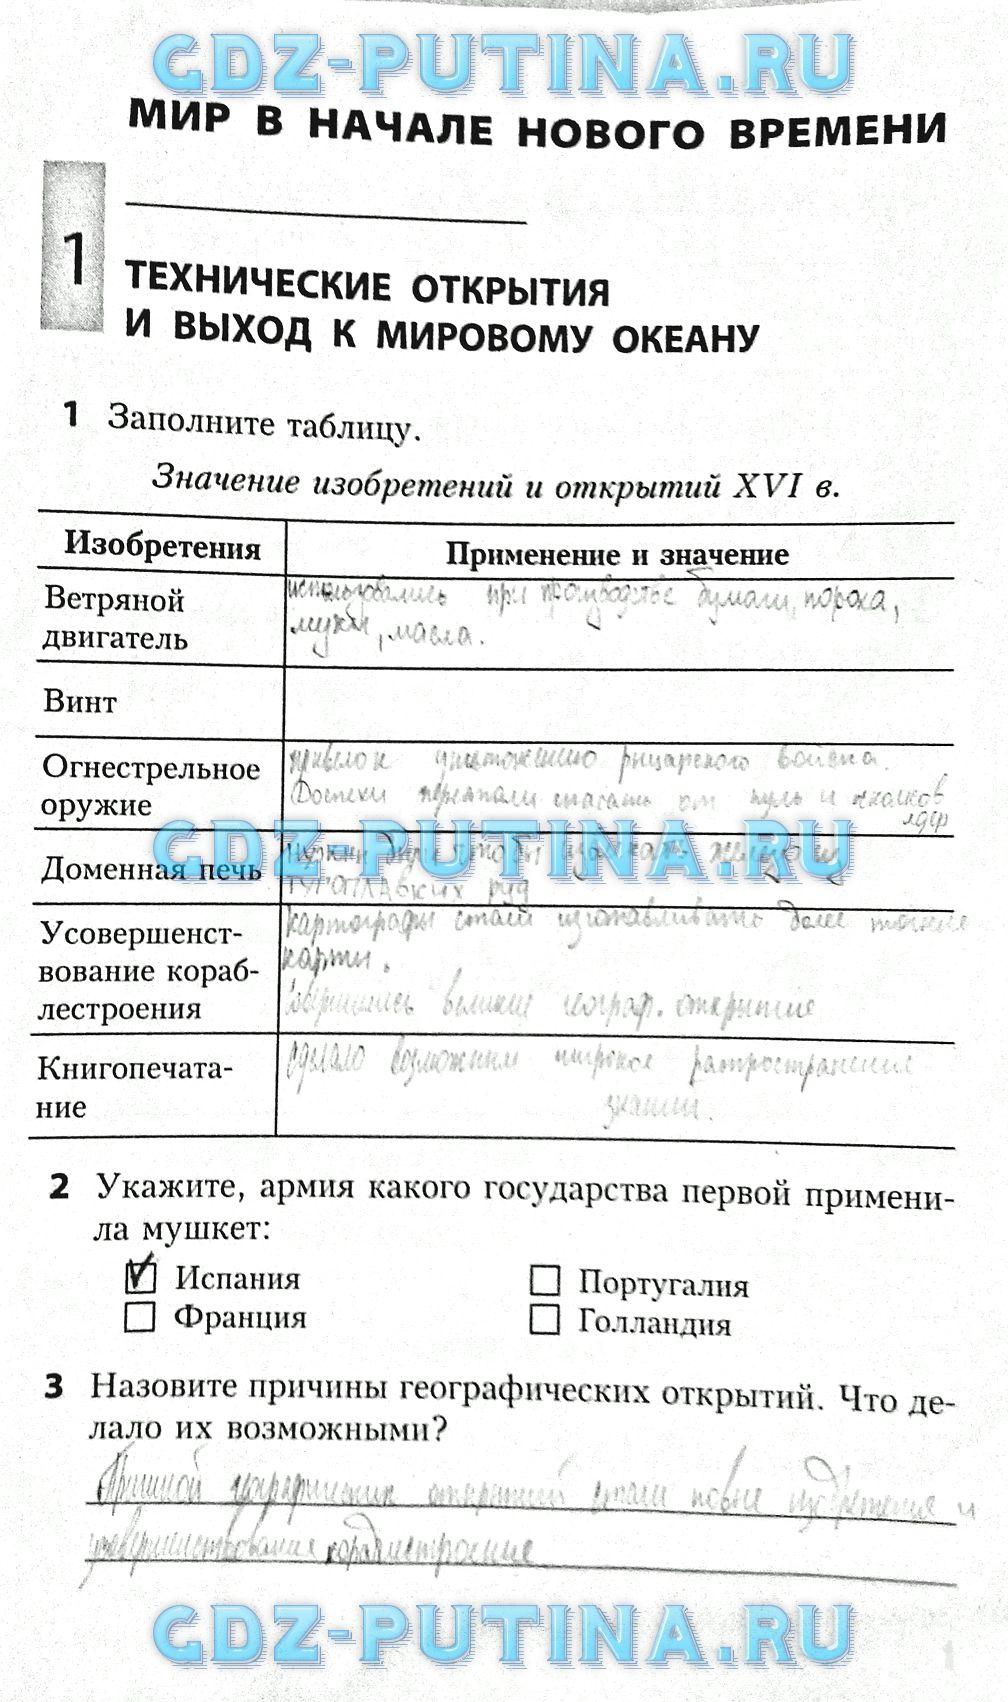 GDZ-PUTINA.RU
МИР В НАЧАЛЕ НОВОГО ВРЕМЕНИ
1
ТЕХНИЧЕСКИЕ ОТКРЫТИЯ
И ВЫХОД К МИРОВОМУ ОКЕАНУ
1 Заполните таблицу.
Значение изобретений и открытий XVI в.
Изобретения
Применение и значение
Ветряной
двигатель
использовались при производстве бумаги, пороха,
муки, масла.
Винт
Огнестрельное
оружие
привело к уничтожению рыцарского войска.
Доспехи перестали спасать от пуль и осколков
ядер
GDZ-PUTINA.RU
Доменная печь
нужны были чтобы железо из
тугоплавких руд
Усовершенст-
вование кораб-
лестроения
картографы стали изготавливать более точные
карты.
Совершились великие географ. открытие
Книгопечата-
ние
сделало возможным широкое распространение
знании.
2 Укажите, армия какого государства первой примени-
ла мушкет:
Испания
Португалия
Франция
Голландия
3 Назовите причины географических открытий. Что де-
лало их возможными?
Причиной географических открытий стали новые изобретения и
усовершенствования кораблестроение
GDZ-PUTINA.RU
1